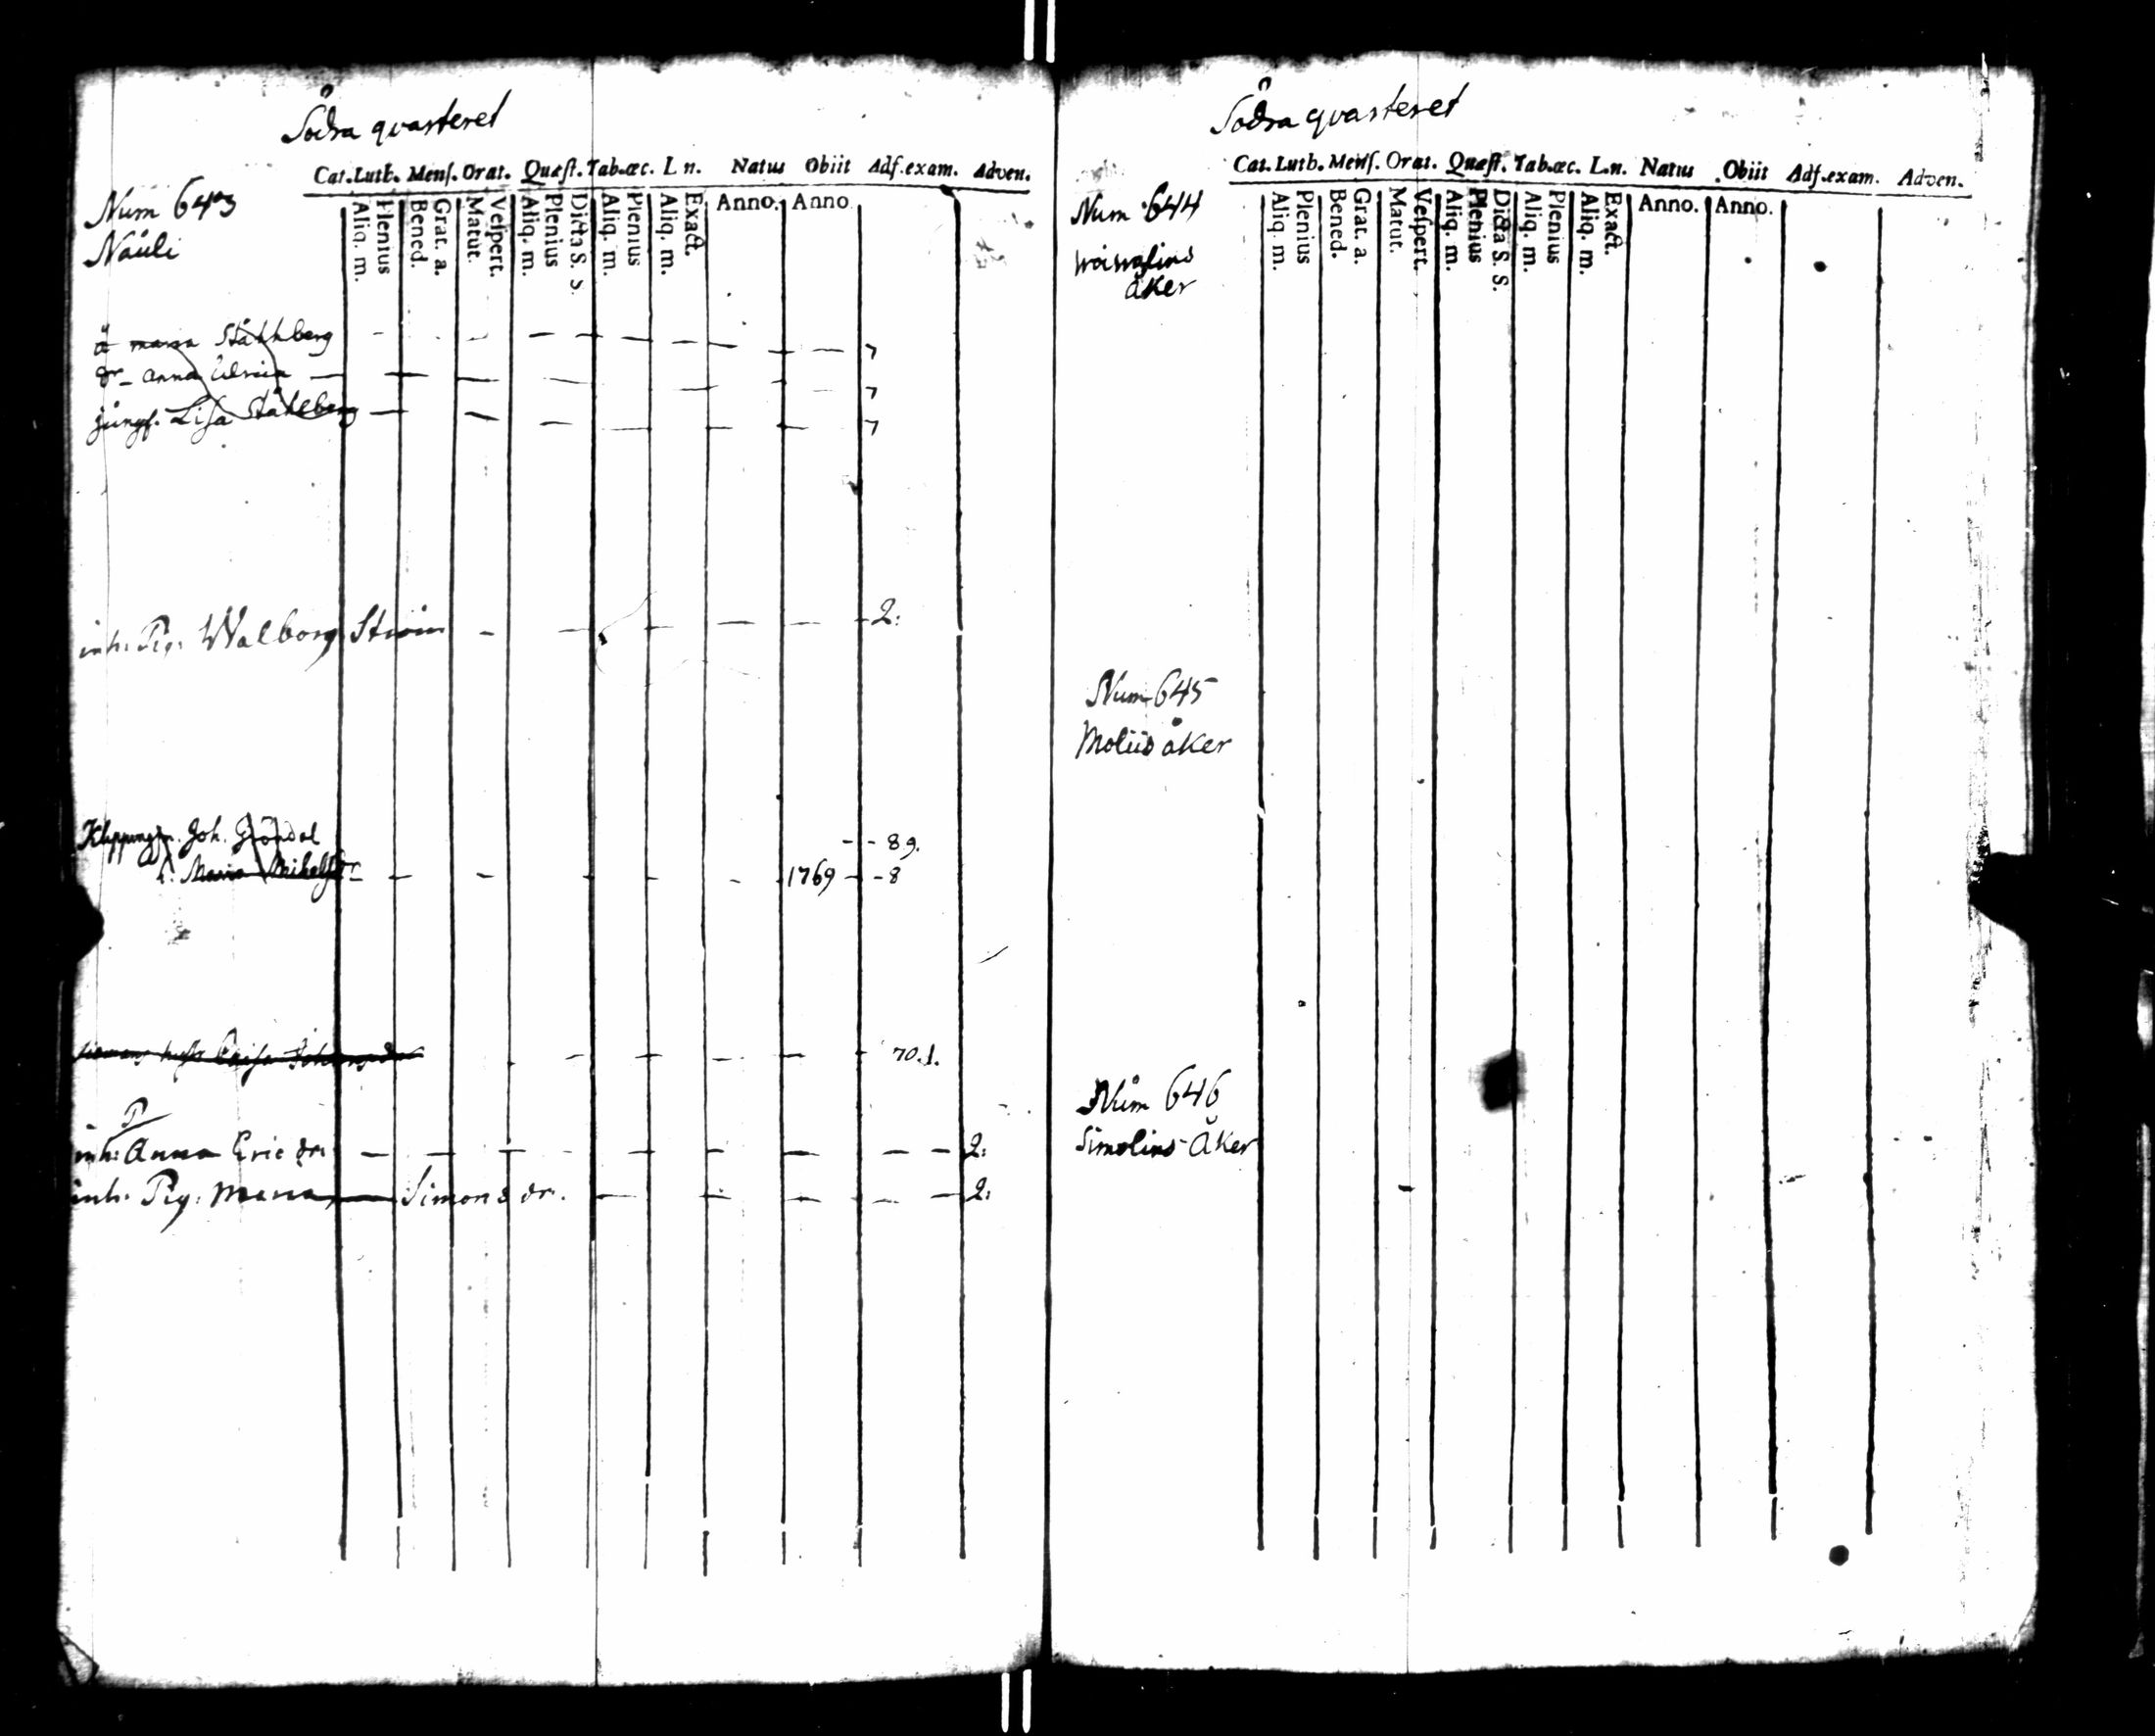 Södra qvarteret
Cat. Luth. Mens. Orat. Quæst. Tab. œc. L n. Natus Obiit Adf. exam. Adven.
Aliq. m. Plenius Bened. Grat. a. Matut. Vespert. Aliq. m. Plenius Dicta S. S. Aliq. m. Plenius Aliq. m. Exact. Anno. Anno
Num 643
Nauli
maria Ståhlberg 7
dr anna Ulrica 7
jungf. Lisa Ståhlberg 7
inh: Pig: Walborg 2:
Joh. Gröndal 89.
h. Maria Mikelsdr 1769 8
70.1.
P
inh: Anna Ericsdr: 2:
inh: Pig: Maria Simonsdr. 2:
Södra qvarteret
Cat. Luth. Mens. Orat. Quæst. Tab. œc. L. n. Natus Obiit Adf. exam. Adven.
Aliq. m. Plenius Bened. Grat. a. Matut. Vespert. Aliq. m. Plenius Dicta S. S. Aliq. m. Plenius Aliq. m. Exact. Anno. Anno.
Num 644
åker
Num 645
Moliis åker
Num 646
Simolins åker